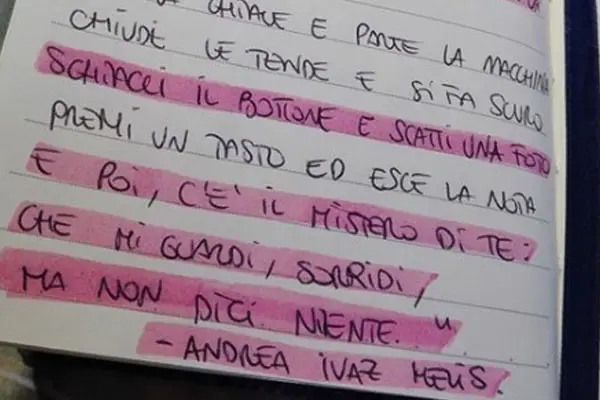 CHIAVE E PARTE LA MACCHINA
CHIUDI LE TENDE E SI FA SCURO
SCHIACCI IL BOTTONE E SCATTI UNA FOTO
PREMI UN TASTO ED ESCE LA NOTA
E POI, C'E' IL MISTERO DI TE:
CHE MI GUARDI, SORRIDI,
MA NON DICI NIENTE. "
- ANDREA IVAZ MELIS.